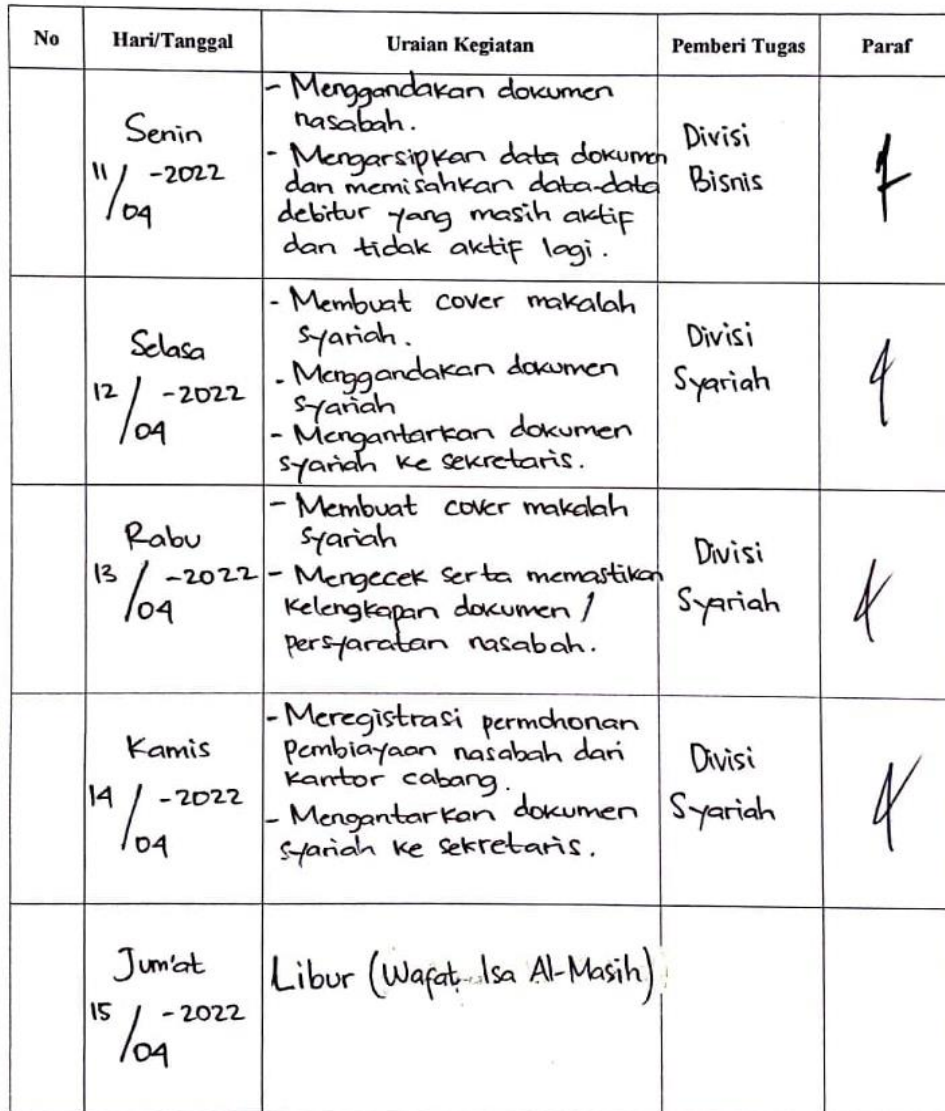 No Hari/Tanggal Uraian Kegiatan Pemberi Tugas Paraf
Senin
11/04-2022
- Menggandakan dokumen
nasabah.
- Mengarsipkan data dokumen
dan memisahkan data-data
debitur yang masih aktif
dan tidak aktif lagi.
Divisi
Bisnis
Selasa
12/04-2022
- Membuat cover makalah
syariah.
- Menggandakan dokumen
syariah
- Mengantarkan dokumen
syariah ke sekretaris.
Divisi
Syariah
Rabu
13/04-2022
- Membuat cover makalah
syariah
- Mengecek serta memastikan
kelengkapan dokumen /
persyaratan nasabah.
Divisi
Syariah
Kamis
14/04-2022
- Meregistrasi permohonan
pembiayaan nasabah dari
kantor cabang.
- Mengantarkan dokumen
syariah ke sekretaris.
Divisi
Syariah
Jum'at
15/04-2022
Libur (Wafat Isa Al-Masih)